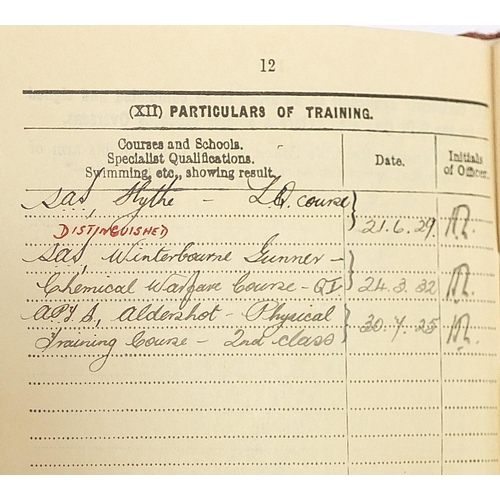 12
(XII) PARTICULARS OF TRAINING.
Courses and Schools.
Specialist Qualifications.
Swimming, etc., showing result.
Date.
Initials
of Officer.
SAS, Hythe - L.Q course
DISTINGUISHED
21.6.29.
SAS, Winterbourne Gunner -
Chemical Warfare Course - QI
24.3.32
APTS, Aldershot - Physical
Training Course - 2nd class
30.7.25